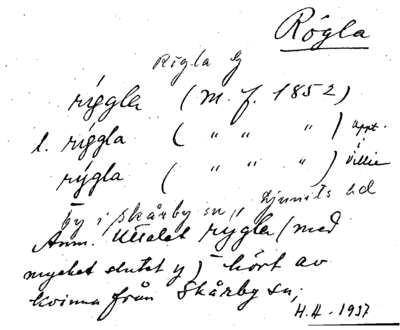 Rögla
Rigla G
riggla (m. f. 1852)
l. riggla ( " " " ) uppt.
rygla ( " " " ) Villie
by i Skårby sn, Ljunits hd
Anm. Uttalet rygla (med
mycket slutet y) hört av
kvinna från Skårby sn,
H.H. 1937